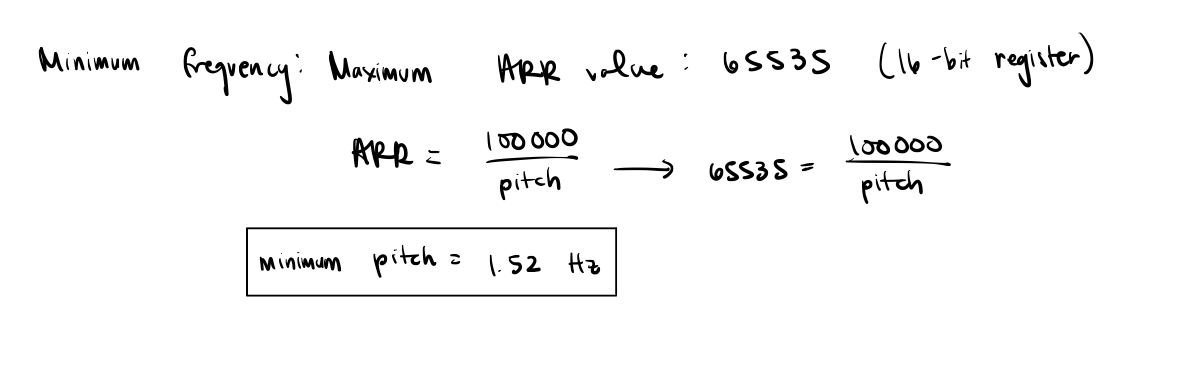 Minimum frequency: Maximum ARR value: 65535 (16-bit register)
ARR = 100000/pitch → 65535 = 100000/pitch
minimum pitch = 1.52 Hz